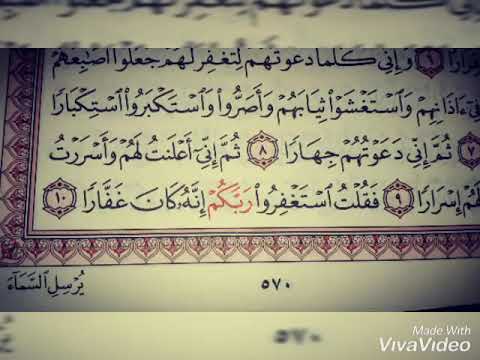 ٦ وَإِنِّي كُلَّمَا دَعَوْتُهُمْ لِتَغْفِرَ لَهُمْ جَعَلُوٓا۟ أَصَٰبِعَهُمْ
فِىٓ ءَاذَانِهِمْ وَٱسْتَغْشَوْا۟ ثِيَابَهُمْ وَأَصَرُّوا۟ وَٱسْتَكْبَرُوا۟ ٱسْتِكْبَارًا
٧ ثُمَّ إِنِّى دَعَوْتُهُمْ جِهَارًا ٨ ثُمَّ إِنِّىٓ أَعْلَنتُ لَهُمْ وَأَسْرَرْتُ
لَهُمْ إِسْرَارًا ٩ فَقُلْتُ ٱسْتَغْفِرُوا۟ رَبَّكُمْ إِنَّهُۥ كَانَ غَفَّارًا ١٠
يُرْسِلِ ٱلسَّمَآءَ
٥٧٠
٥٧٠
Made With
VivaVideo